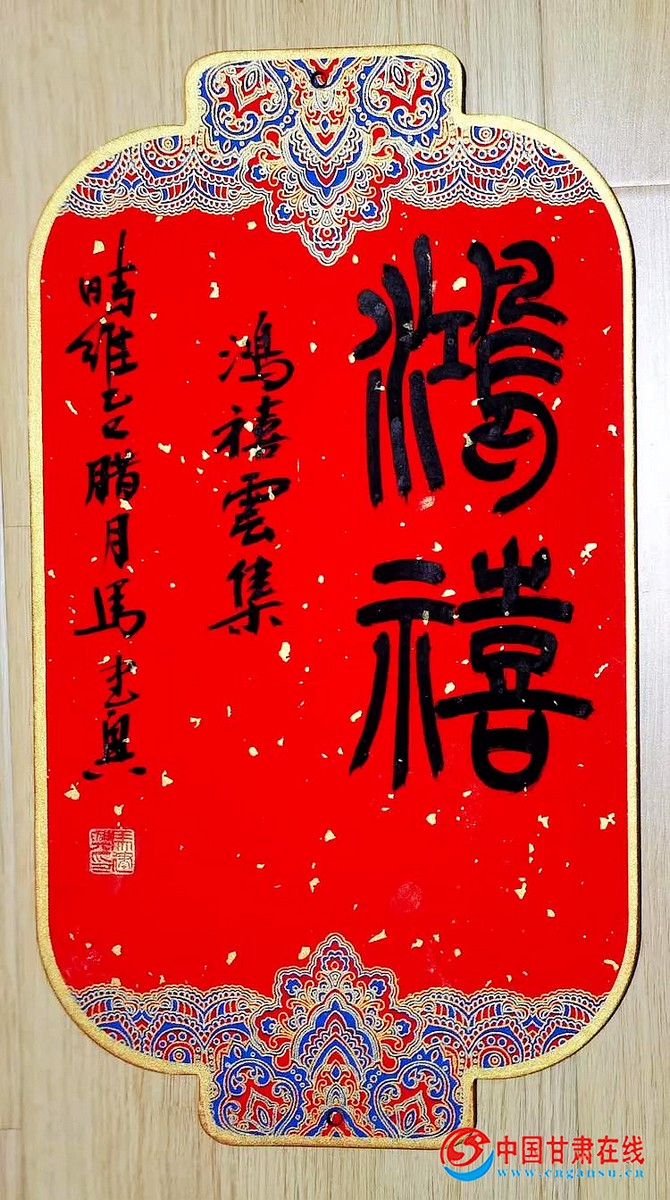 鴻禧
鴻禧雲集
時維乙巳腊月馬建興
中国甘肃在线
www.cngansu.cn